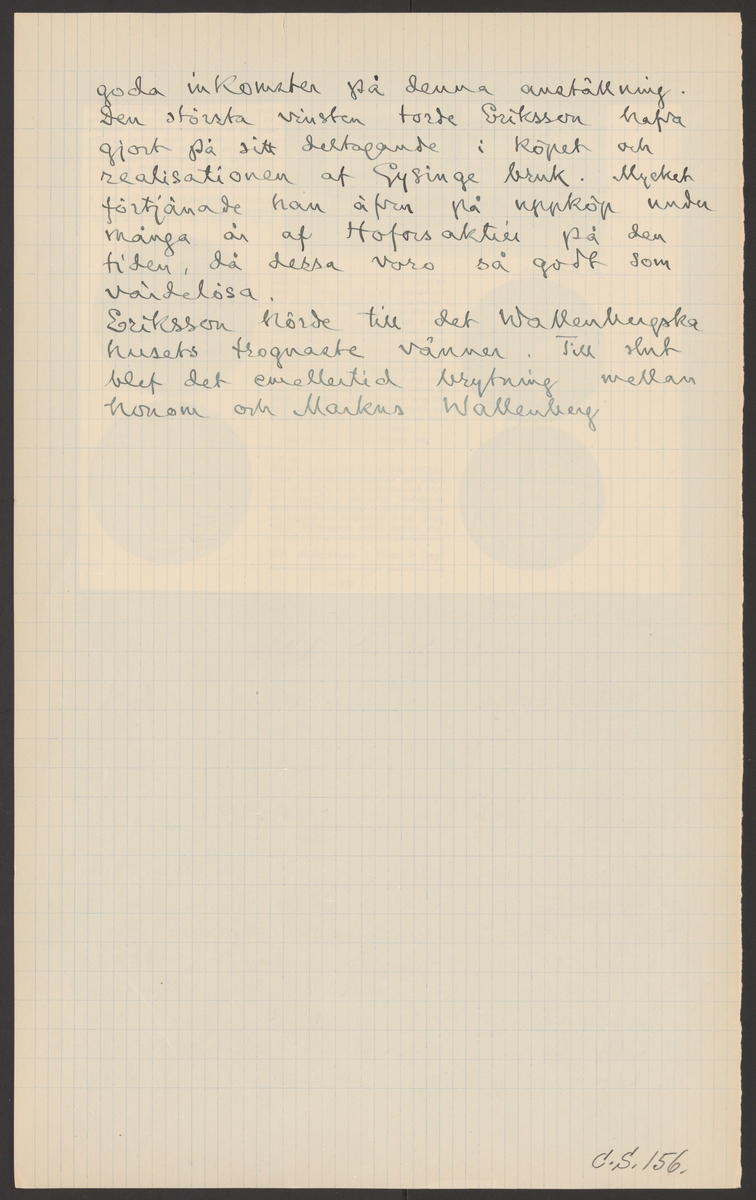 goda inkomster på denna anställning.
Den största vinsten torde Eriksson hafva
gjort på sitt deltagande i köpet och
realisationen af Gysinge bruk. Mycket
förtjänade han äfven på uppköp under
många år af Hofors aktier på den
tiden, då dessa voro så godt som
värdelösa.
Eriksson hörde till det Wallenbergska
husets trognaste vänner. Till slut
blef det emellertid brytning mellan
honom och Markus Wallenberg
C.S. 156.